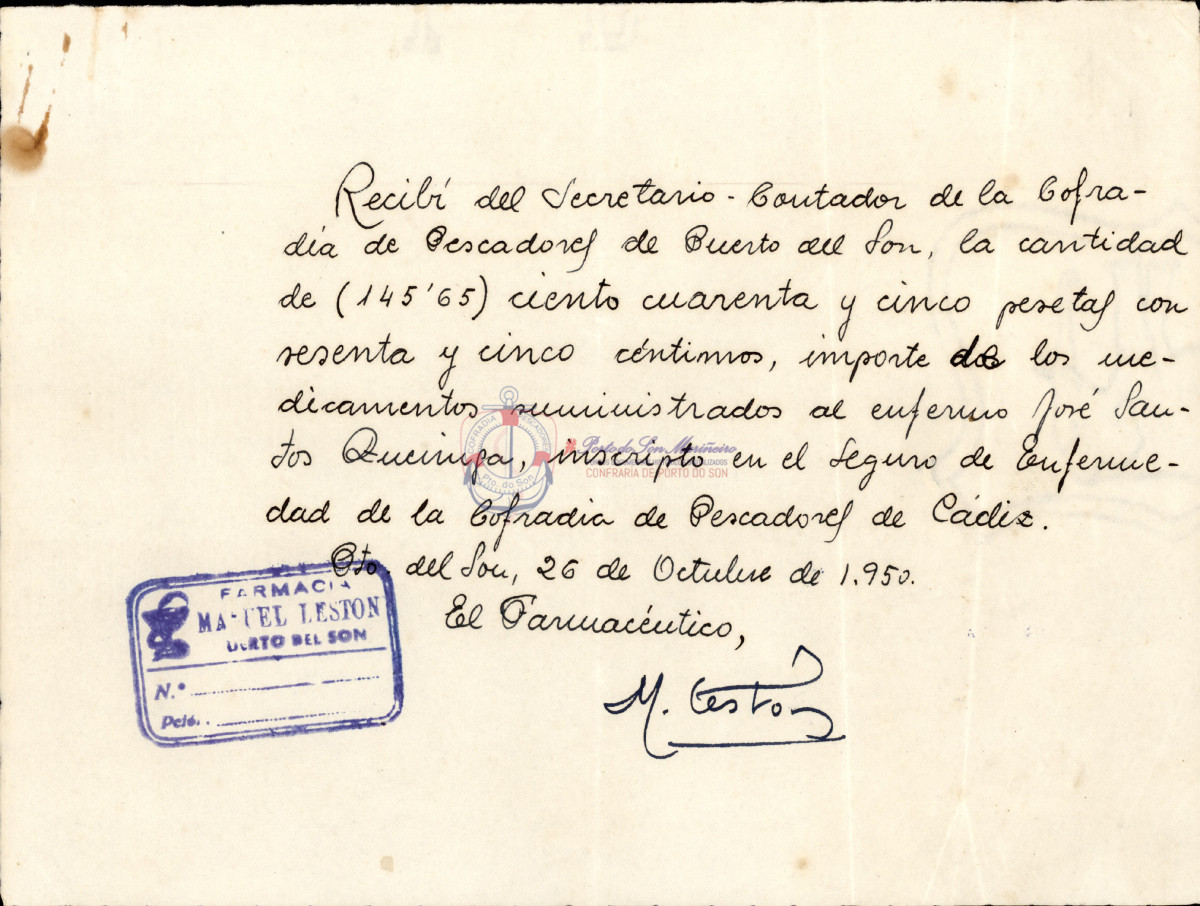 Recibí del Secretario-Contador de la Cofra-
día de Pescadores de Puerto del Son, la cantidad
de (145'65) ciento cuarenta y cinco pesetas con
sesenta y cinco céntimos, importe de los me-
dicamentos suministrados al enfermo José San-
tos, inscripto en el Seguro de Enferme-
dad de la Cofradía de Pescadores de Cádiz.
Pto. del Son, 26 de Octubre de 1.950.
El Farmacéutico,
M. Lestón
FARMACIA
MANUEL LESTON
PUERTO DEL SON
N.º
COFRADIA PESCADORES
Pto. do Son
Porto do Son Mariñeiro
CONFRARÍA DE PORTO DO SON